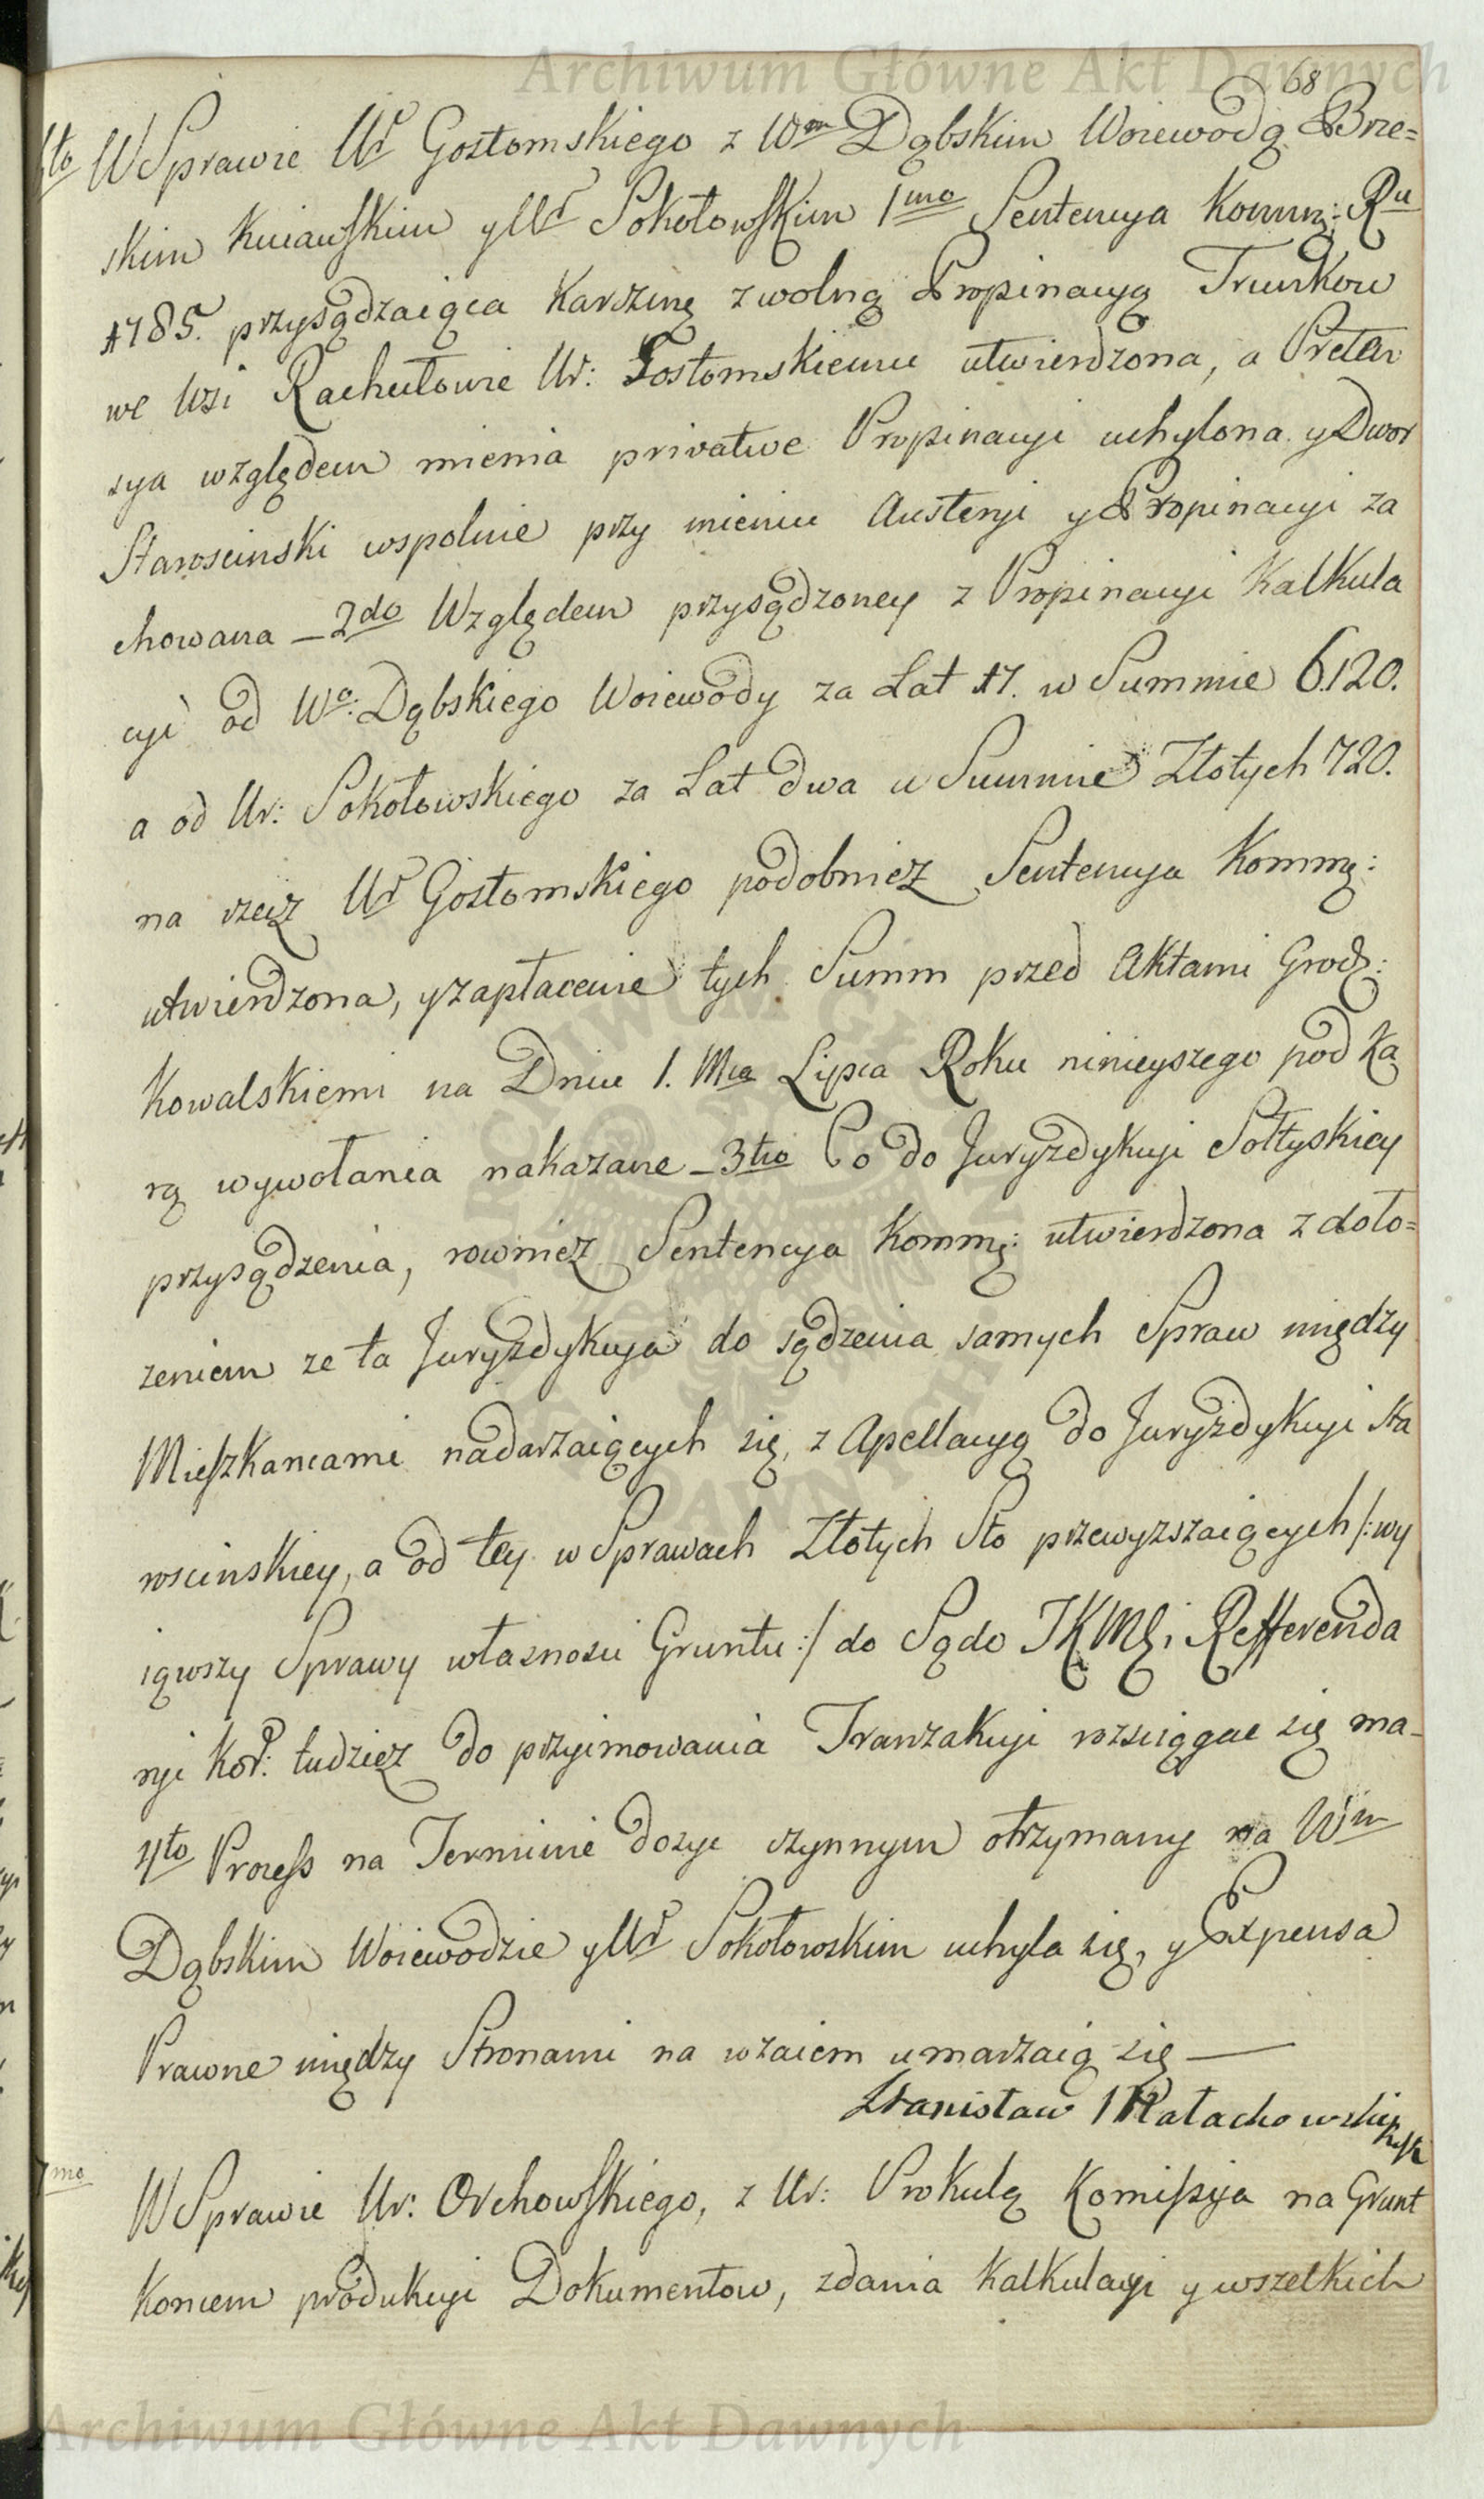 Archiwum Główne Akt Dawnych
68
6to W Sprawie Ur Gostomskiego z Wm Dąbskim Woiewodą Brze=
skim Kuiawskim y Ur Sokołowskim 1mo Sentencya Komm: Ru
1785. przysądzaiąca Karczmę z wolną Propinacyą Trunkow
we Wsi Rachutowie Ur: Gostomskiemu utwierdzona, a Preten
sya względem mienia privative Propinacyi uchylona y Dwor
Staroscinski wspolnie przy mieniu Austeryi y Propinacyi za
chowana – 2do Względem przysądzoney z Propinacyi Kalkula
cyi od Wo: Dąbskiego Woiewody za Lat 17. w Summie 6120.
a od Ur: Sokołowskiego za Lat dwa w Summie Złotych 720.
na rzecz Ur Gostomskiego podobnież Sentencya Komm:
utwierdzona, y zapłacenie tych Summ przed Aktami Grodz:
Kowalskiemi na Dniu 1. Mca Lipca Roku ninieyszego pod Ka
rą wywołania nakazane – 3tio Co do Juryzdykcyi Sołtyskiey
przysądzenia, rownież Sentencya Komm: utwierdzona z doło=
zeniem ze ta Juryzdykcya do sądzenia samych Spraw między
Mieszkancami nadarzaiących się, z Apellacyą do Juryzdykcyi Sta
roscinskiey, a od tey w Sprawach Złotych Sto przewyzszaiących /: wy
iąwszy Sprawy własnosci Gruntu :/ do Sądo JKMCi Refferenda
ryi Kor: tudzież do przyimowania Tranzakcyi rozciągac się ma –
4to Process na Terminie dosyc czynnym otrzymany na Wm
Dąbskim Woiewodzie y Ur Sokołowskim uchyla się, y Expensa
Prawne między Stronami na wzaiem umarzaią się —
Stanisław Małachowski
7mo W Sprawie Ur: Orchowskiego, z Ur: Prokulą Komissya na Grunt
Koncem produkcyi Dokumentow, zdania Kalkulacyi y wszelkich
Archiwum Główne Akt Dawnych